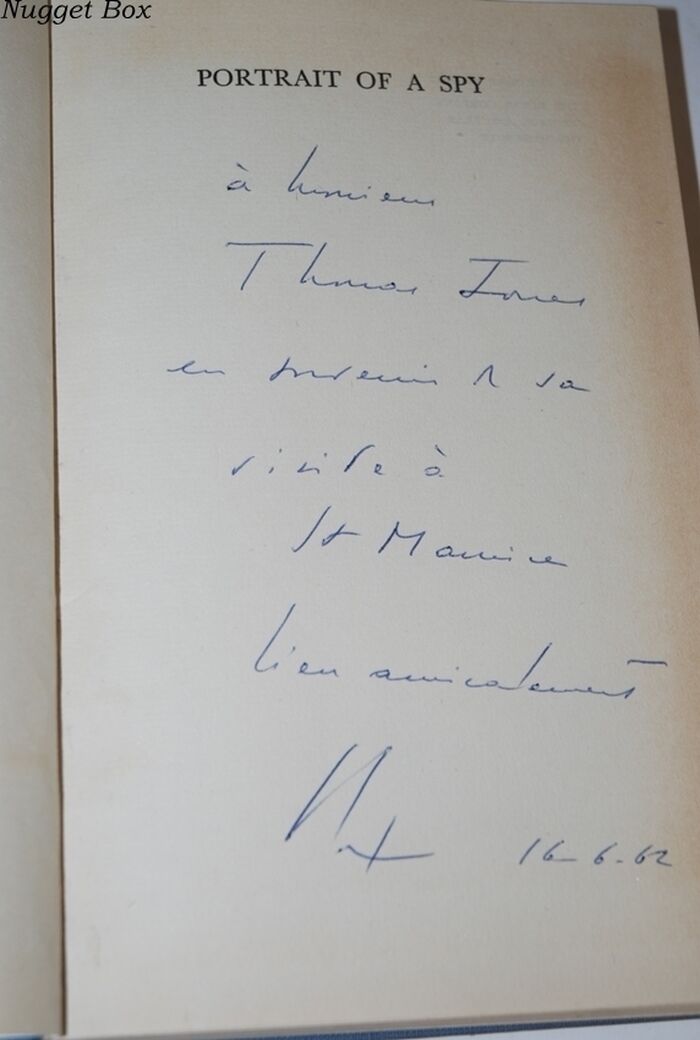 Nugget Box
PORTRAIT OF A SPY
à Monsieur
Thomas Jones
en souvenir de sa
visite à
St Maurice
bien amicalement
16-6-62